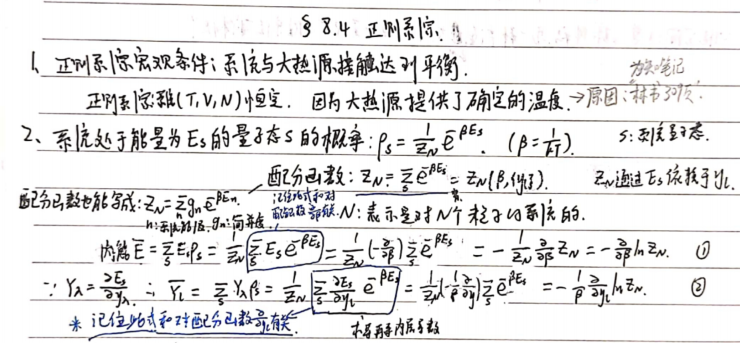 § 8.4 正则系综.
1、正则系综宏观条件：系统与大热源接触达到平衡.
正则系综(T,V,N)恒定. 因为大热源提供了确定的温度.→原因：林书309页.
2、系统处于能量为Es的量子态S的概率：ρs = 1/Z_N e^{-βEs}. (β=1/kT). S：系统量子态.
配分函数：Z_N = Σ_s e^{-βEs} = Z_N(β,{y_l}). Z_N通过Es依赖于y_l.
配分函数也能写成：Z_N = Σ_n g_n e^{-βE_n}. 记住此式和对配分函数 N：表示是对N个粒子的系统的.
n：系统能级，g_n：简并度
内能 Ē = Σ_s Es ρs = 1/Z_N Σ_s Es e^{-βEs} = 1/Z_N (-∂/∂β) Σ_s e^{-βEs} = -1/Z_N ∂/∂β Z_N = -∂/∂β ln Z_N. ①
∵ Y_λ = ∂Es/∂y_λ ∴ Ȳ_l = Σ_s Y_λ ρs = 1/Z_N Σ_s ∂Es/∂y_l e^{-βEs} = 1/Z_N (-1/β ∂/∂y_l) Σ_s e^{-βEs} = -1/β ∂/∂y_l ln Z_N. ②
* 记住此式和对配分函数 有关.